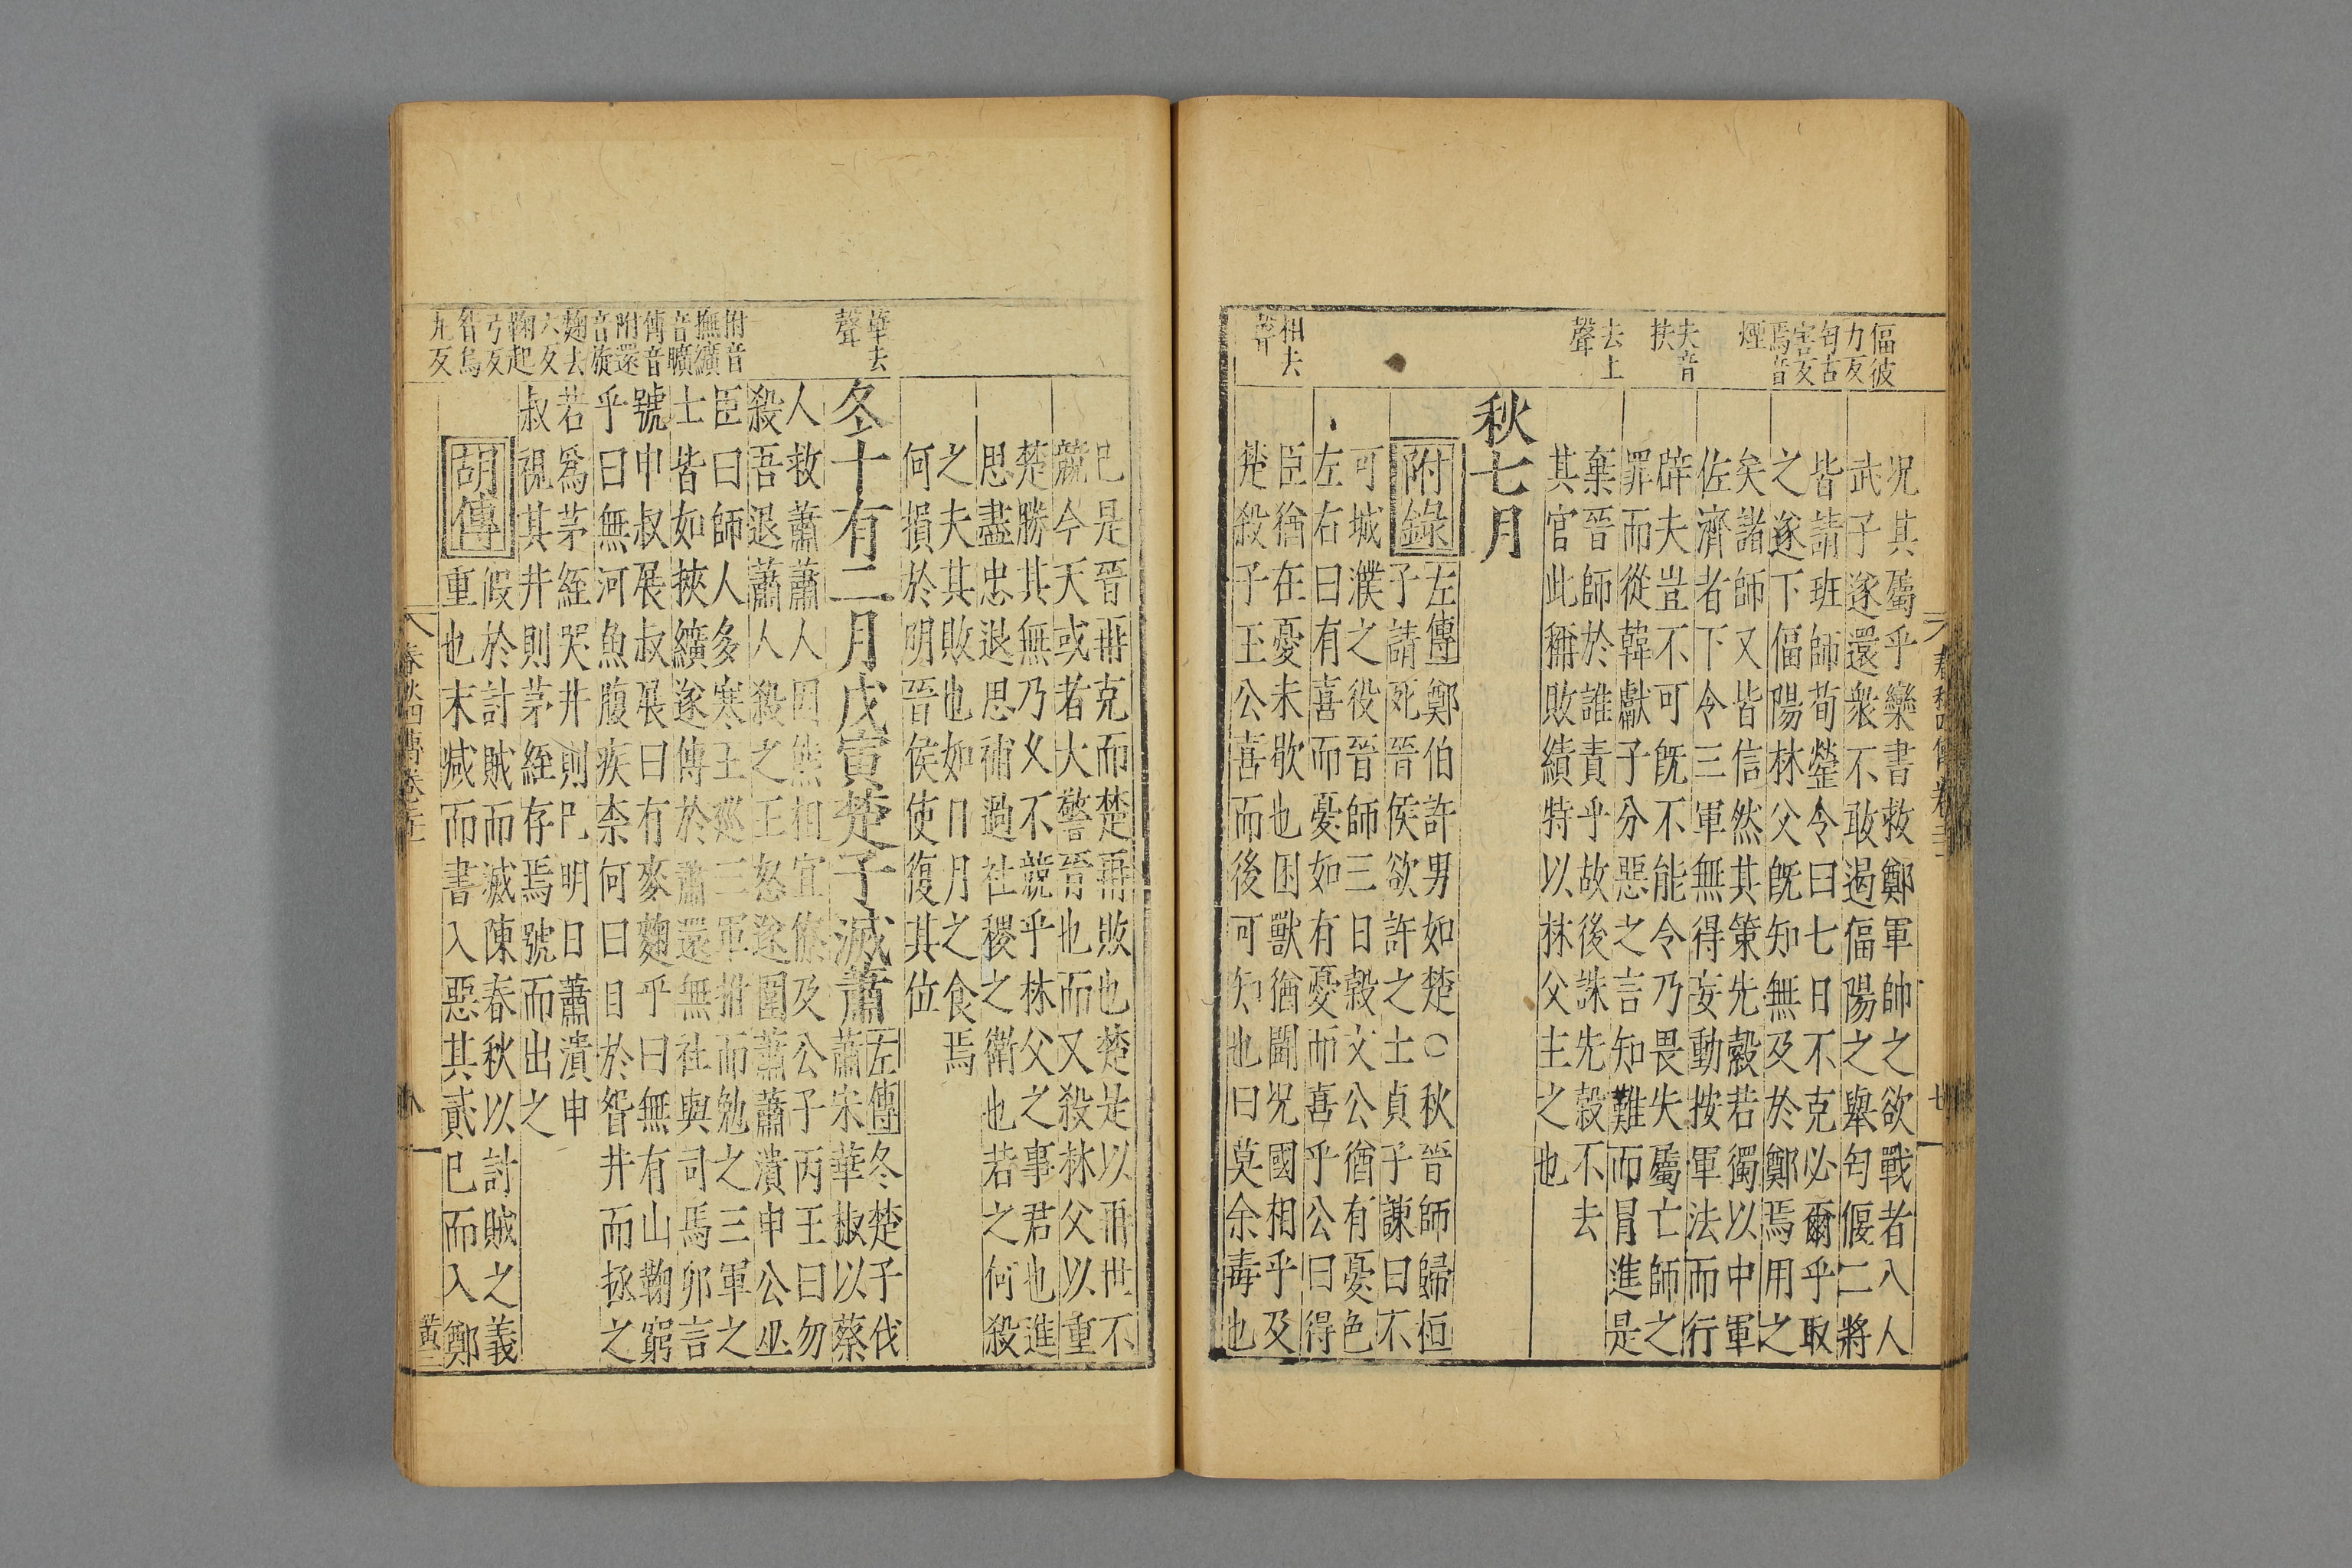 偪彼
力反
匄古
害反
焉音
煙
夫音
扶
去上
聲
相去
聲
況其屬乎欒書救鄭軍帥之欲戰者八人
武子遂還衆不敢遏偪陽之舉匄偃二將
皆請班師荀罃令曰七日不克必爾乎取
之遂下偪陽林父旣知無及於鄭焉用之
矣諸師又皆信然其策先縠若獨以中軍
佐濟者下令三軍無得妄動按軍法而行
辟夫豈不可旣不能令乃畏失屬亡師之
罪而從韓獻子分惡之言知難而冒進是
棄晉師於誰責乎故後誅先縠不去
其官此稱敗績特以林父主之也
秋七月
附錄
左傳鄭伯許男如楚○秋晉師歸桓
子請死晉侯欲許之士貞子諫曰不
可城濮之役晉師三日榖文公猶有憂色
左右曰有喜而憂如有憂而喜乎公曰得
臣猶在憂未歇也困獸猶鬬況國相乎及
楚殺子玉公喜而後可知也曰莫余毒也
春秋四傳卷
華去
聲
附音
撫纊
音曠
傅音
附還
音旋
麴去
六反
鞠起
弓反
眢烏
九反
已是晉再克而楚再敗也楚是以再世不
競今天或者大警晉也而又殺林父以重
楚勝其無乃久不競乎林父之事君也進
思盡忠退思補過社稷之衞也若之何殺
之夫其敗也如日月之食焉
何損於明晉侯使復其位
冬十有二月戊寅楚子滅蕭
左傳冬楚子伐
蕭宋華椒以蔡
人救蕭蕭人囚熊相宜僚及公子丙王曰勿
殺吾退蕭人殺之王怒遂圍蕭蕭潰申公巫
臣曰師人多寒王巡三軍拊而勉之三軍之
士皆如挾纊遂傅於蕭還無社與司馬卯言
號申叔展叔展曰有麥麴乎曰無有山鞠窮
乎曰無河魚腹疾柰何曰目於眢井而拯之
若爲茅絰哭井則已明日蕭潰申
叔視其井則茅絰存焉號而出之
胡傳
假於討賊而滅陳春秋以討賊之義
重也末減而書入惡其貳已而入鄭
春秋四傳卷